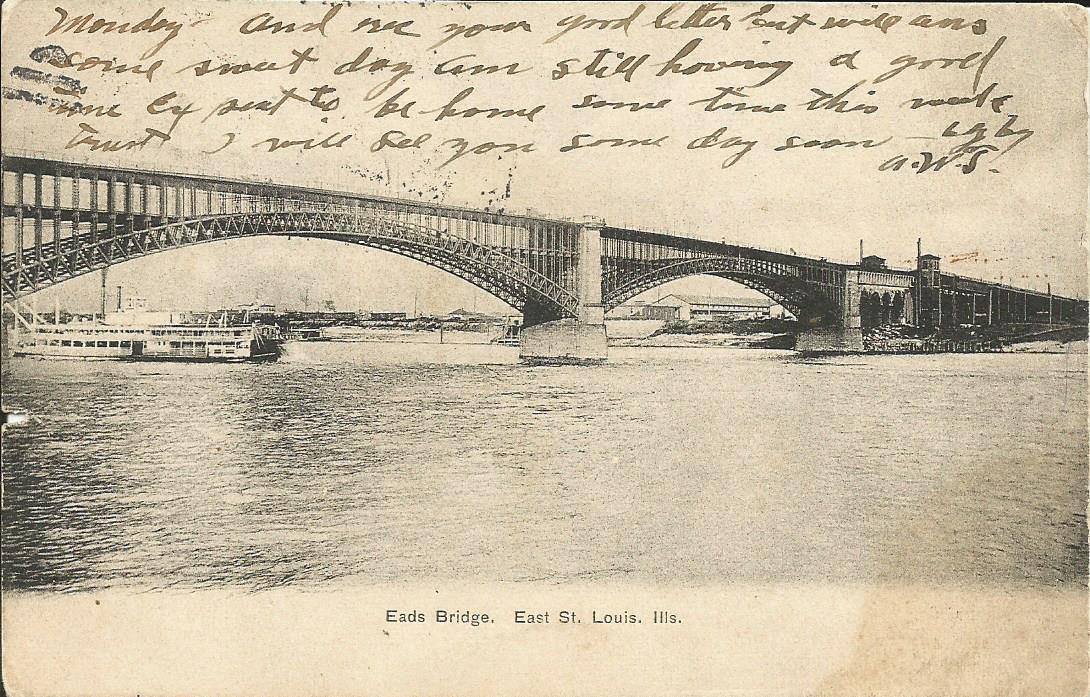 Monday and rec your good letter but will ans
some sweet day am still having a good
time Ex pect to be home some time this week
trust I will see you some day soon
A.W.S.
Eads Bridge. East St. Louis. Ills.